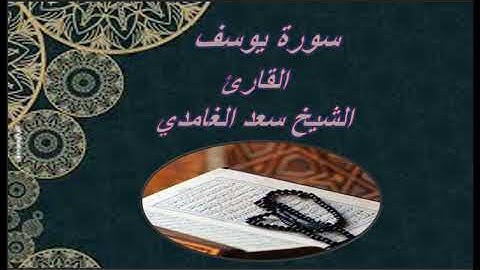 سورة يوسف
القارئ
الشيخ سعد الغامدي